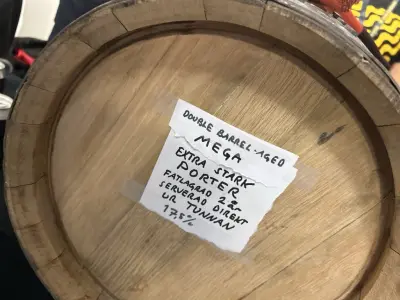 DOUBLE BARREL-AGED
MEGA
EXTRA STARK
PORTER
FATLAGRAD 22-
SERVERAD DIREKT
UR TUNNAN
17,5%